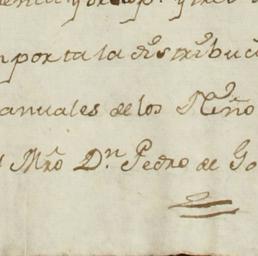 mporta la distribuc
anuales de los Niño
Mrõ Dn. Pedro de Go